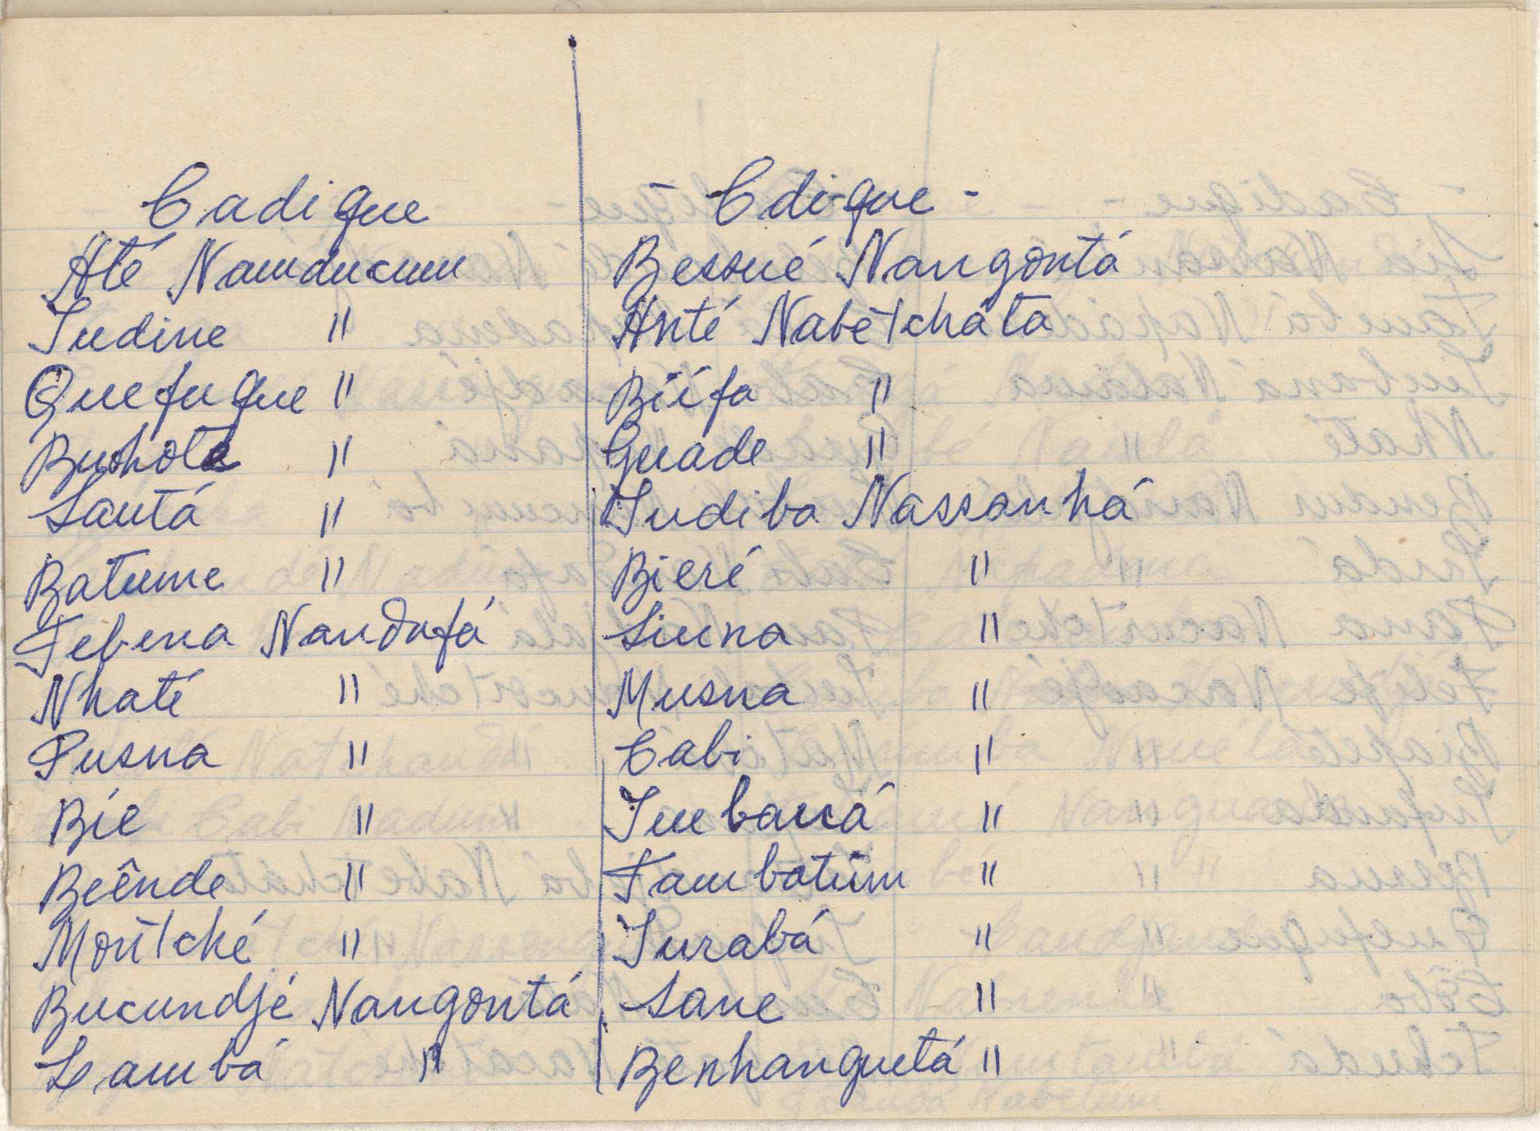 Cadique
Até Namducum
Iudine "
Quefugue "
Buohote "
Santá "
Batume "
Tebena Nandafá
Nhaté "
Pusna "
Bié "
Beênde "
Montché "
Bucundjé Nangontá
Lambá "
- Cdi-que -
Bessué Nangontá
Anté Nabêtcháta
Biifa "
Guade "
Iudiba Nassanhá
Bieré "
Siuna "
Musna "
Cabi "
Imbaná "
Tambatum "
Iurabá "
Sane "
Benhanguetá "